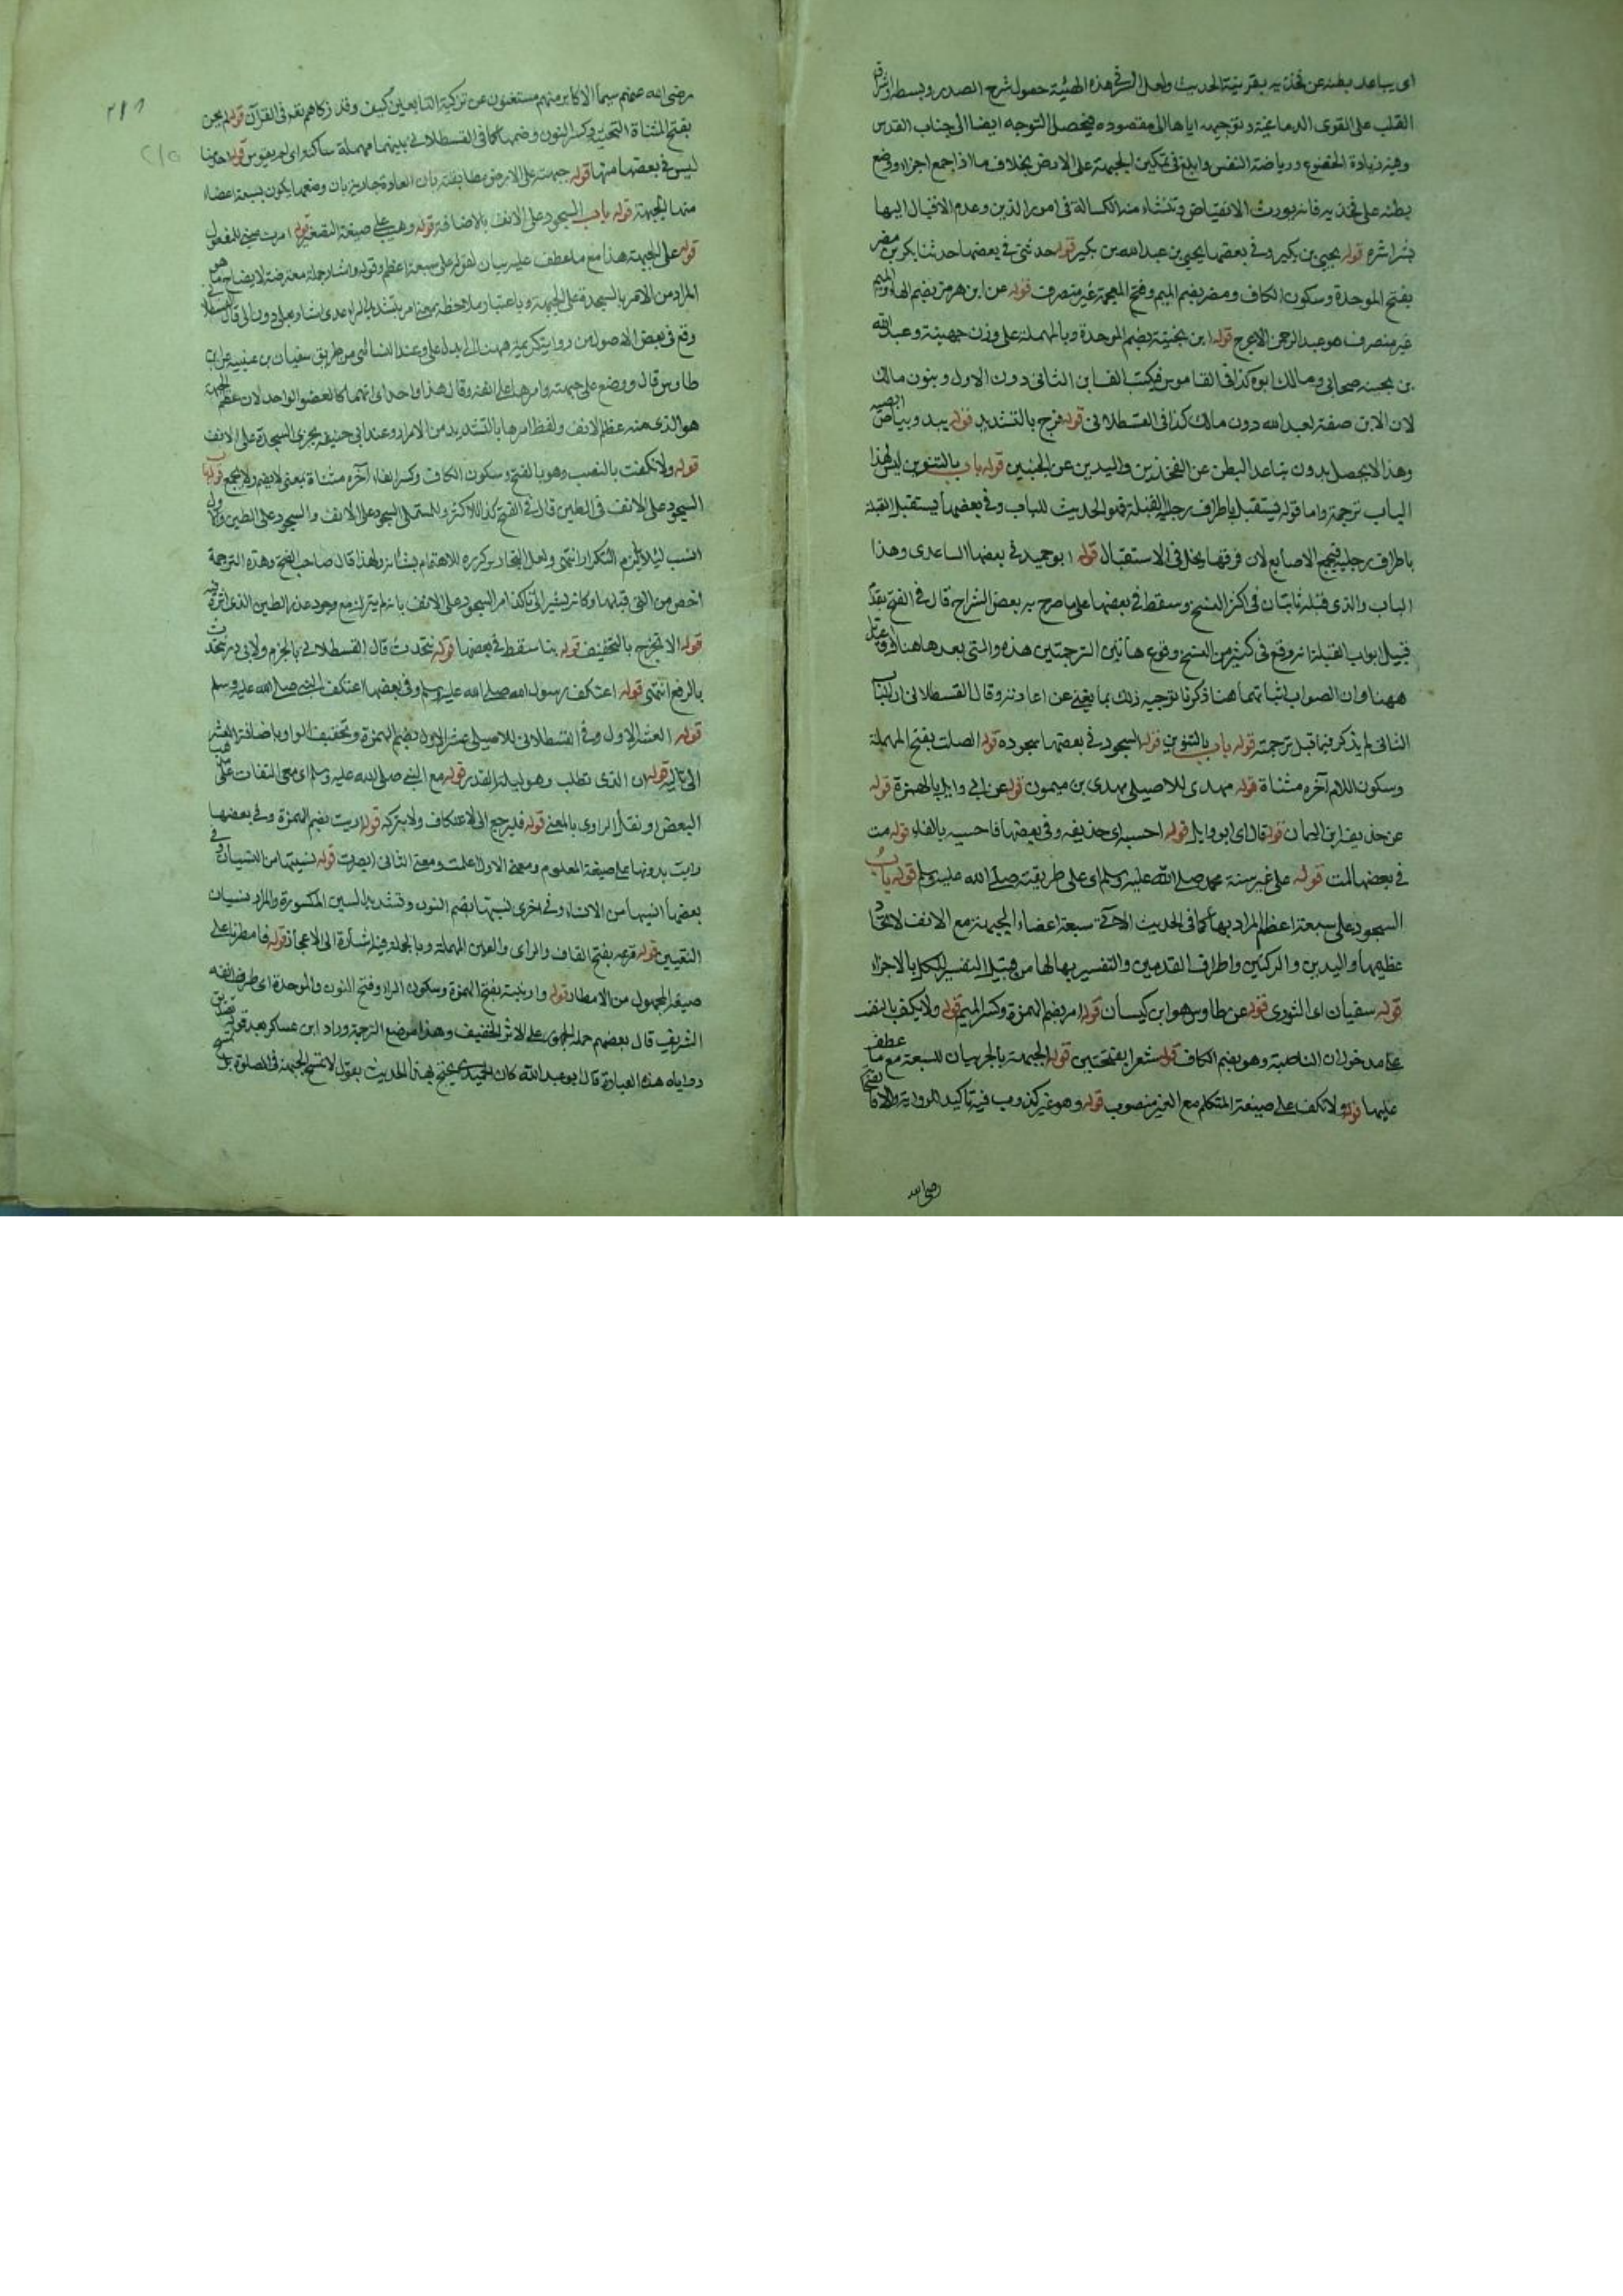 اى يباعد بطنه عن فخذيه بقرينة الحديث ولعل السر فى هذه الهيئة حصول شرح الصدر وبسطه واشراق
القلب على القوى الدماغية وتوجيهه اياها الى مقصوده فيحصل التوجه ايضا الى جناب القدس
وفيه زيادة الخضوع ورياضة النفس وابلغ فى تمكين الجبهة على الارض بخلاف ما اذا جمع اجزاءه ووضع
بطنه على فخذيه فانه يورث الانقباض وتنشاء منه الكسالة فى امور الدين وعدم الاقبال اليها
بشراشره قوله يحيى بن بكير وفى بعضها يحيى بن عبد الله بن بكير قوله حدثنى فى بعضها حدثنا بكر بن مضر
بفتح الموحدة وسكون الكاف ومضر بضم الميم وفتح المعجمة غير منصرف قوله عن ابن هرمز بضم الهاء والميم
غير منصرف هو عبد الرحمن الاعرج قوله ابن بحينة بضم الموحدة وبالمهملة على وزن جهينة وعبد الله
بن بحينه صحابى ومالك ابوه كذا فى القاموس فيكتب الف ابن الثانى دون الاول وبنون مالك
لان الابن صفة لعبد الله دون مالك كذا فى القسطلانى قوله فرج بالتشديد قوله يبدو بياض ابطيه
وهذا لا يحصل بدون تباعد البطن عن الفخذين واليدين عن الجنبين قوله باب بالتنوين ليس لهذا
الباب ترجمة واما قوله يستقبل باطراف رجليه القبلة فهو الحديث للباب وفى بعضها يستقبل القبلة
باطراف رجليه الاصابع لان فرقها يخل فى الاستقبال قوله ابو حميد فى بعضها الساعدى وهذا
الباب والذى قبله ثابتان فى اكثر النسخ وسقط فى بعضها على ما صرح به بعض الشراح قال فى الفتح تقدم
قبيل ابواب القبلة انه وقع فى كثير من النسخ وقوع هاتين الترجمتين هذه والتى بعدها هناك
ههنا وان الصواب اثباتهما هنا ذكرنا توجيه ذلك بما يغنى عن اعادته وقال القسطلانى ان الباب
الثانى لم يذكر فيما قبل ترجمته قوله باب بالتنوين قوله السجود فى بعضها سجوده قوله الصلت بفتح المهملة
وسكون اللام آخره مثناة قوله مهدى للاصيلى مهدى بن ميمون قوله عن ابى وايل بالهمزة قوله
عن حذيفة ابن اليمان قوله قال اى ابو وايل قوله احسبه اى حذيفه وفى بعضها فاحسبه بالفاء قوله مت
فى بعضها لمت قوله على غير سنة محمد صلى الله عليه وسلم اى على طريقته صلى الله عليه وسلم قوله باب
السجود على سبعة اعظم المراد بها كما فى الحديث الاتى سبعة اعضاء الجبهة مع الانف لاتحاد
عظيمها واليدين والركبتين واطراف القدمين والتفسير بها لها من قبيل التفسير للكل بالاجزاء
قوله سفيان اى الثورى قوله عن طاوس هو ابن كيسان قوله امر بضم الهمزة وكسر الميم قوله ولا يكف بالنصب
مدخول ان الناصبة وهو بضم الكاف قوله شعرا بفتحتين قوله الجبهة بالجر بيان للسبعة مع ما عطف
عليها قوله ولا نكف على صيغة المتكلم مع الغير منصوب قوله وهو غير كذوب فيه تاكيد الرواية والا
رضى الله
٢١٦
رضى الله عنهم سيما الاكابر منهم مستغنون عن تزكية التابعين كيف وقد زكاهم الله فى القرآن قوله لم يحن
بفتح المثناة التحتية وكسر النون وضمها كما فى القسطلانى بينهما مهملة ساكنة اى لم يقوس قوله احد منا
ليس فى بعضها منها قوله جبهته على الارض مطابقته بان العادة جارية بان وضعها يكون بسبعة اعضاء
منها الجبهة قوله باب السجود على الانف بالاضافة قوله وهيب على صيغة التصغير قوله امرت مبنى للمفعول
قوله على الجبهة هذا مع ما عطف عليه بيان لقوله على سبعة اعظم وقوله واشار جملة معترضة لايضاح ما هو
المراد من الامر بالسجدة على الجبهة
وقع فى بعض الاصول من رواية كريمة ههنا الى بدل على وعند النسائى من طريق سفيان بن عيينه عن ابن
طاوس قال ووضع على جبهته وامرها على انفه وقال هذا واحد اى انهما كالعضو الواحد لان عظم الجبهة
هو الذى منه عظم الانف ولفظ امرها بالتشديد من الامرار وعند ابى حنيفه يجزى السجدة على الانف
قوله ولا نكفت بالنصب وهو بالفتح وسكون الكاف وكسر الفاء آخره مثناة بمعنى لا نضم ولا نجمع قوله باب
السجود على الانف فى الطين قال فى الفتح كذا للاكثر وللمستملى السجود على الانف والسجود على الطين والاول
انسب لئلا يلزم التكرار انتهى ولعل البخارى كرره للاهتمام بشانه ولهذا قال صاحب الفتح وهذه الترجمة
اخص من التى قبلها وكانه يشير الى تاكد امر السجود على الانف بانه لم يترك مع وجود عذر الطين الذى اثر فيه
قوله الا تخرج بالتخفيف قوله بنا سقط فى بعضها قوله نتحدث قال القسطلانى بالجزم ولابى ذر نتحدث
بالرفع انتهى قوله اعتكف رسول الله صلى الله عليه وسلم وفى بعضها اعتكف النبى صلى الله عليه وسلم
قوله العشر الاول وفى القسطلانى للاصيلى عشر الاول بضم الهمزة وتخفيف الواو باضافة العشر
الى تاليه قوله ان الذى تطلب وهو ليلة القدر قوله مع النبى صلى الله عليه وسلم اى معى التفات على مذهب
البعض او نقل الراوى بالمعنى قوله فليرجع الى الاعتكاف ولا يتركه قوله اريت بضم الهمزة وفى بعضها
رايت بدونها على صيغة المعلوم ومعنى الاول اعلمت ومعنى الثانى ابصرت قوله نسيتها من النسيان وفى
بعضها انسيها من الانساء وفى اخرى نسيتها بضم النون وتشديد السين المكسورة والمراد نسيان
التعيين قوله قزعه بفتح القاف والزاى والعين المهملة وبالجملة فيه اشارة الى الاعجاز قوله فامطرنا على
صيغة المجهول من الامطار قوله وارنبته بفتح الهمزة وسكون الراء وفتح النون والموحدة اى طرف انفه
الشريف قال بعضهم حمله الجمهور على الاثر الخفيف وهذا موضع الترجمة وزاد ابن عساكر بعد قوله تصديق
روياه هذه العبارة قال ابو عبد الله كان الحميدى يحتج بهذا الحديث بقول لا تمسح الجبهة فى الصلوة بل